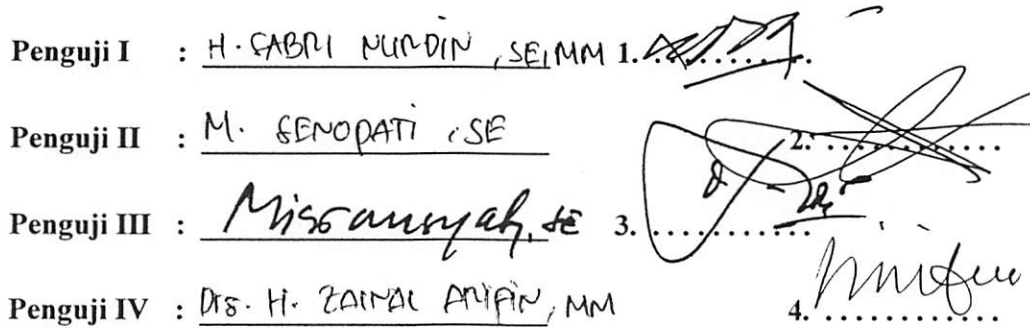 Penguji I : H. SABRI NURDIN, SE, MM 1. ............
Penguji II : M. SENOPATI, SE 2. ............
Penguji III : Misransyah, SE 3. ............
Penguji IV : Drs. H. ZAINAL ARIFIN, MM 4. ............